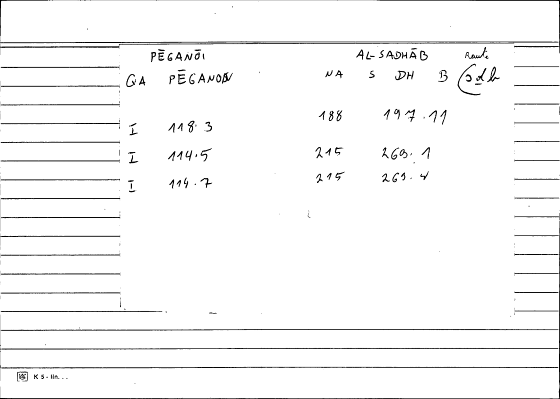 PĒGANŌI AL-SADHĀB Raute
QA PĒGANON NA S DH B sdb
I 118.3 188 197.11
I 114.5 215 269.1
I 114.7 215 261.4
K 5 - lin. . .